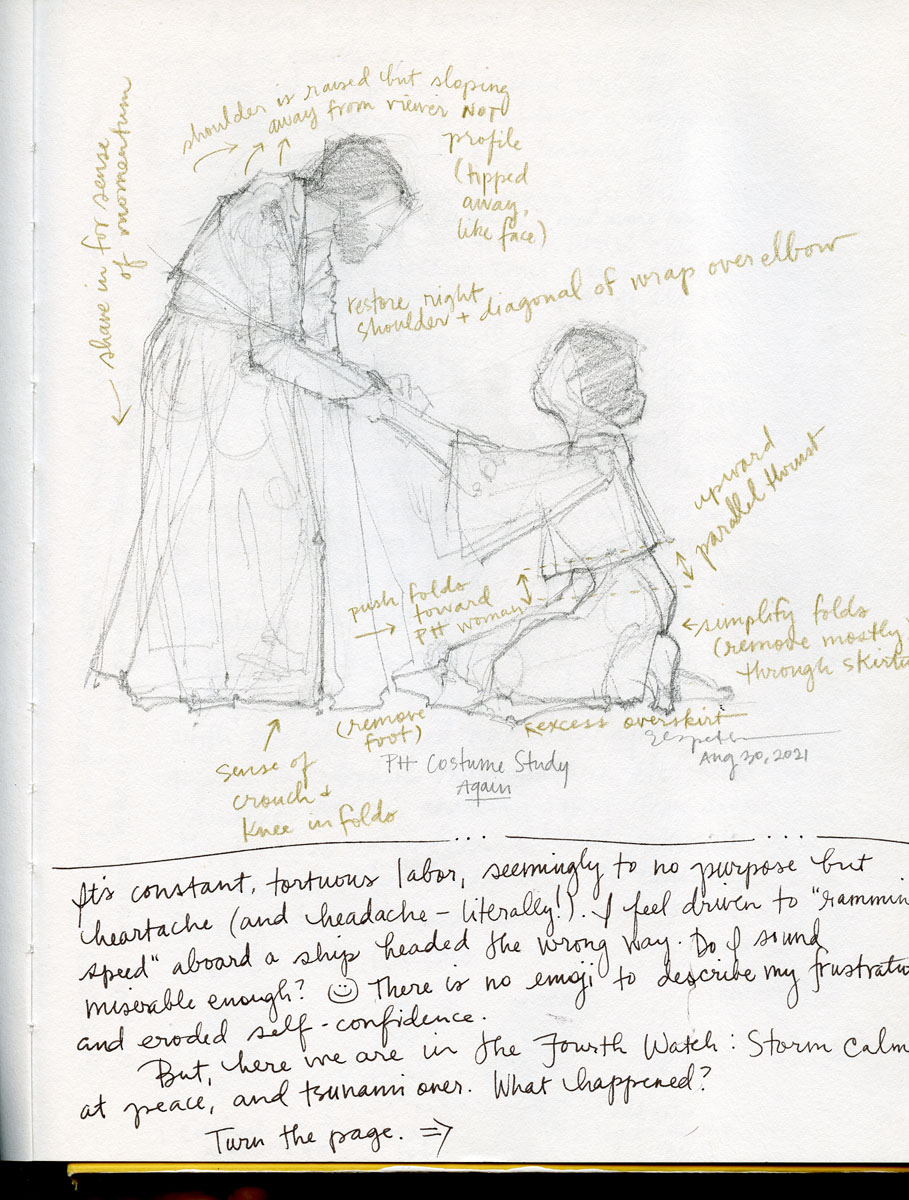 shoulder is raised but sloping
away from viewer NOT
profile
(tipped
away,
like face)
shave in for sense
of momentum
restore right
shoulder + diagonal of wrap over elbow
upward
parallel thrust
push folds
toward
PH woman
simplify folds
(remove mostly
through skirt
(remove
foot)
excess overskirt
Aug 30, 2021
sense of
crouch +
knee in folds
PH Costume Study
Again
It's constant, tortuous labor, seemingly to no purpose but
heartache (and headache - literally!). I feel driven to "rammin
speed" aboard a ship headed the wrong way. Do I sound
miserable enough? ☺ There is no emoji to describe my frustrati
and eroded self-confidence.
But, here we are in the Fourth Watch: Storm calm
at peace, and tsunami over. What happened?
Turn the page. ⇒